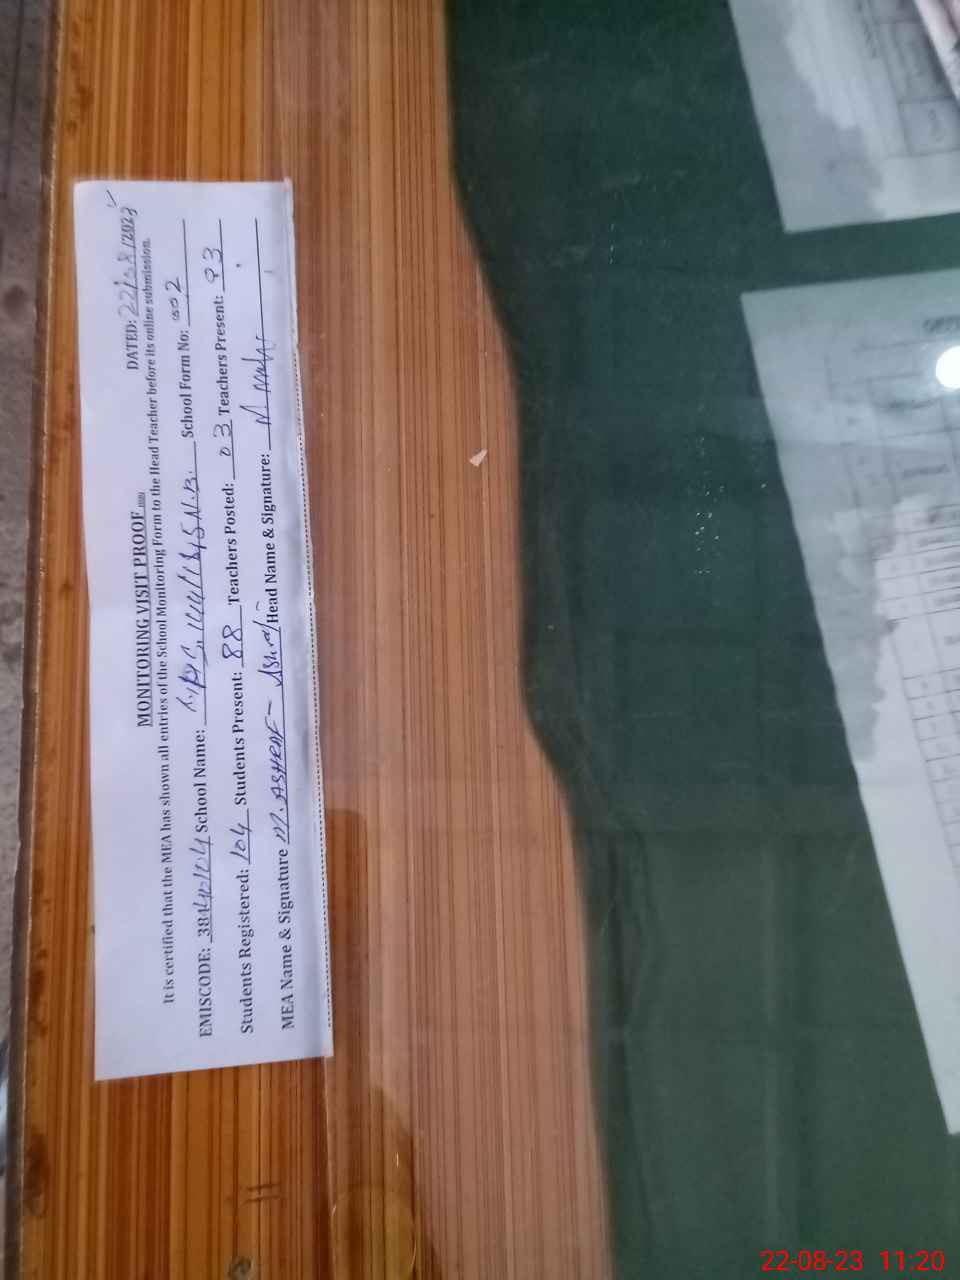 MONITORING VISIT PROOF
DATED: 22/08/2023
It is certified that the MEA has shown all entries of the School Monitoring Form to the Head Teacher before its online submission.
EMISCODE: School Name: School Form No: 002
Students Registered: 104 Students Present: 88 Teachers Posted: 03 Teachers Present: 03
MEA Name & Signature M. ASHRAF - Ashraf Head Name & Signature:
22-08-23 11:20